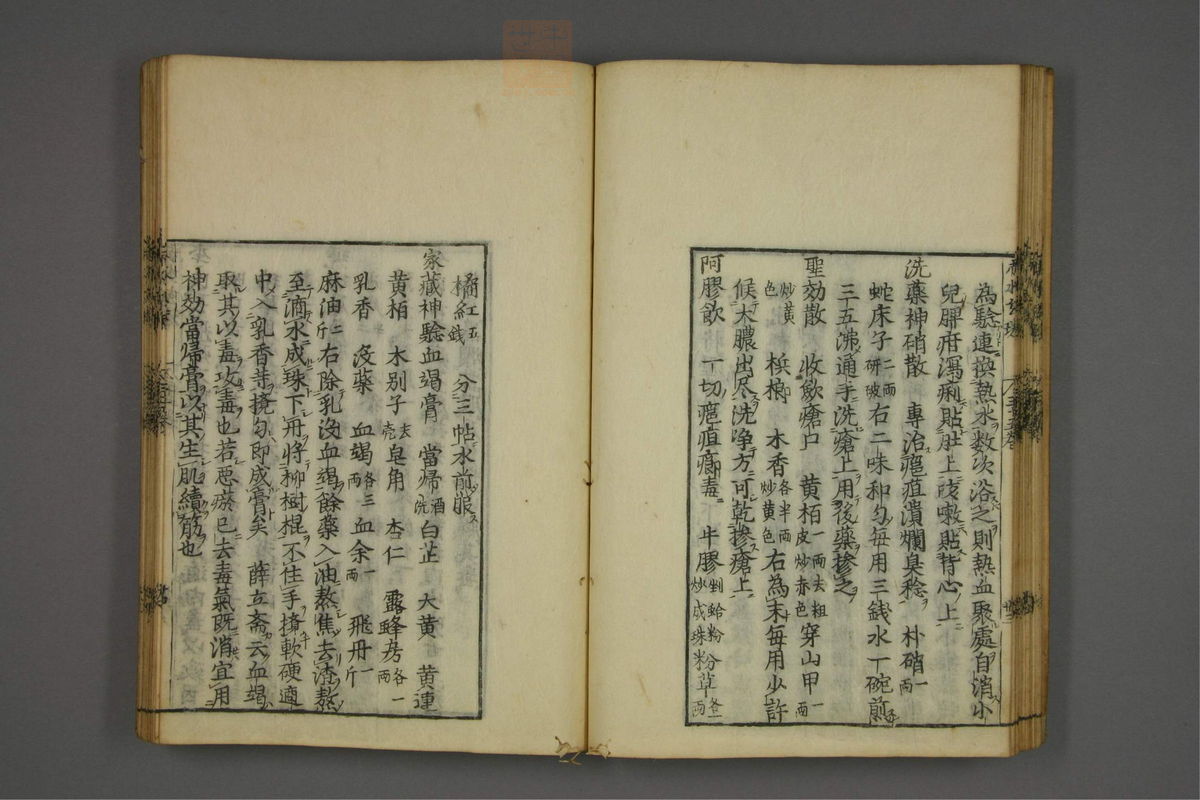 為驗連換熱水数次浴之則熱血聚處自消小
兒脾疳瀉痢貼肚上咳嗽貼背心上
洗藥神硝散 專治癰疽潰爛臭穢 朴硝一兩
蛇床子二兩研破右二味和勻每用三銭水一碗煎
三五沸通手洗瘡上用後藥摻之
聖効散 收歛瘡口 黄栢一兩去粗皮炒赤色穿山甲一兩
炒黄色 槟榔 木香各半兩炒黄色右為末每用少許
候大膿出尽洗净方可乾摻瘡上
阿膠飲 一切癰疽癤毒 牛膠剉蛤粉炒成珠粉草各一兩
橘紅五銭 分三帖水煎服
家蔵神驗血竭膏 當帰酒洗白芷 大黄 黄連
黄栢 木別子去壳皂角 杏仁 露蜂房各一兩
乳香 没藥 血竭各三兩血余一兩 飛丹一斤
麻油二斤右除乳没血竭餘藥入油熬焦去渣熬
至滴水成珠下丹将柳樹棍不住手攪軟硬適
中入乳香等攪勻即成膏矣 薛立斎云血竭
取其以毒攻毒也若悪瘀已去毒氣既消宜用
神効當帰膏以其生肌續筋也